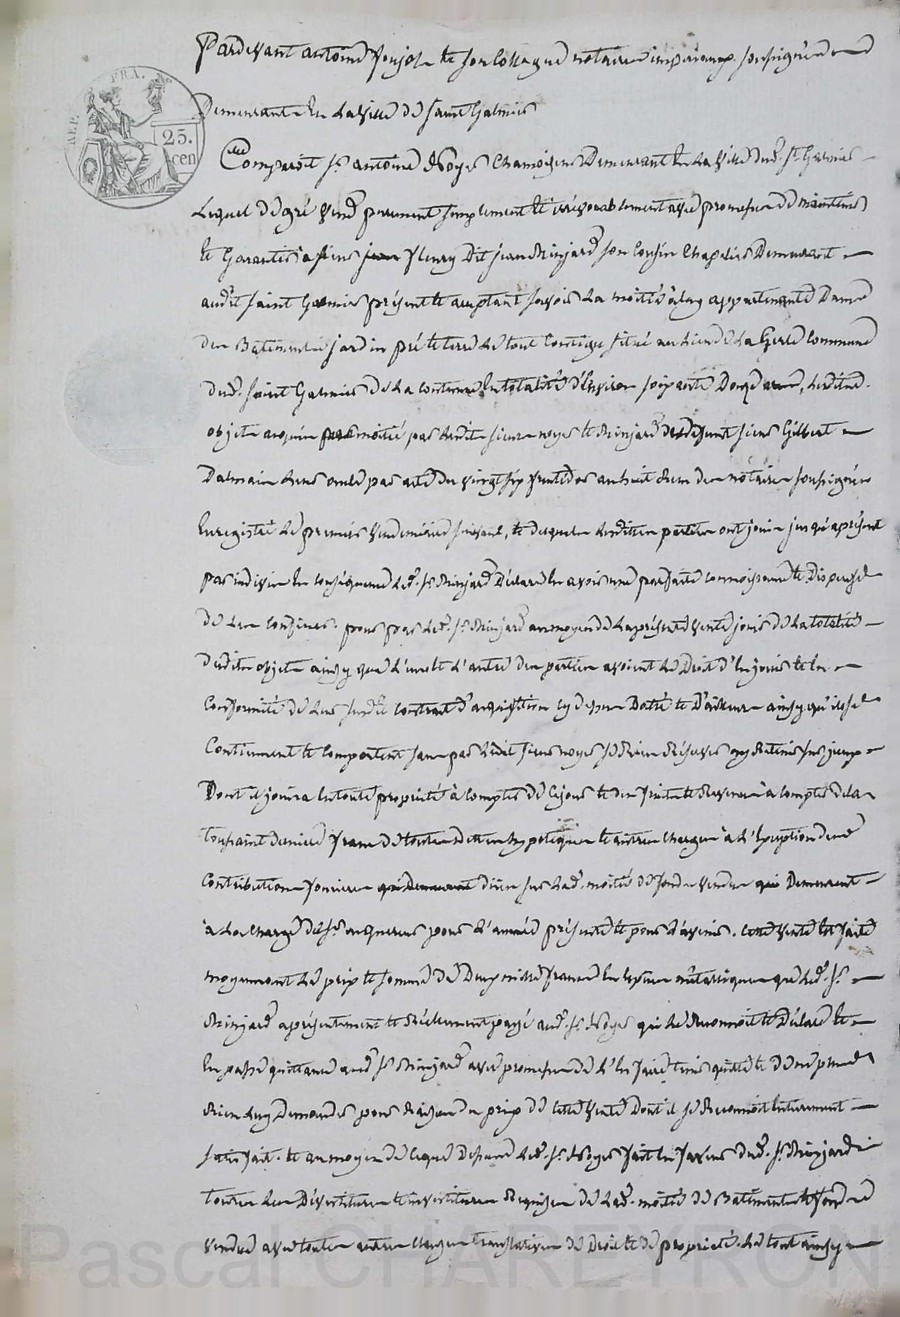 REP. FRA.
25.
cen
Pardevant antoine et son Collegue notaires imperiaux soussignés
Demeurant En la Ville de Saint Galmier
Comparoit Sr. antoine Noyer Chamoiseur Demeurant En la Ville dud. St. Galmier
Lequel de gré vend purement simplement et irrévocablement avec promesse de maintenir
et Garantir à sieur fleury Dit jean Rinjard son Cousin Chapelier Demeurant
audit Saint Galmier présent et acceptant savoir La moitié à luy appartenante Dans
des Batiments jardin pré et terre Le tout Contigu situé au Lieu de La commune
dud. Saint Galmier de La contenue En totalité d'Environ soixante Douze, Lesdits
objets acquis par moitié par Ledit sieur noyer et Rinjard de deffunt sieur Gilbert
Dalmais par acte du vingt six fructidor an huit Reçu des notaires soussignés
Enregistré Le premier vendemiaire suivant, et desquels Lesdittes parties ont joui jusqu'à présent
par indivis En conséquence Led. Sr. Rinjard Déclare En avoir une parfaite connoissance et Dispense
de Les Confiner. pour par Led. Sr. Rinjard au moyen de La présente vente jouir de La totalité
desdits objets ainsy que L'une et L'autre des parties avoient Le Droit d'En jouir et En
Conformité de Leur susdit contrat d'acquisition cy dessus Datté et D'ailleurs ainsy qu'ils se
Contiennent et Comportent sans par Ledit sieur noyer se Rien Réserver ny Retenir
Dont il jouira En toute propriété à Compter de Ce jour et des fruits et Revenus à compter de la
toussaint dernière franc de toutes dettes hypotèques et autres Charges à L'Exception des
Contributions foncières dües sur Lad. moitié de fonds vendus qui Demeurent
à La charge dud. Sr. acquereur pour L'année présente et pour L'avenir. Cette vente Est faite
moyennant Le prix et somme de Deux mille francs En Espèces métalliques que Led. Sr.
Rinjard a présentement et Réellement payé aud. Sr. Noyer qui Le Reconnoit et Déclare et
En passe quittance aud. Sr. Rinjard avec promesse de L'En faire tenir quitte et de ne
Rien Luy Demander pour Raison du prix de cette vente Dont il se Reconnoit Entierement
satisfait. et au moyen de Ce que Dessus Led. Sr. Noyer fait En faveur dud. Sr. Rinjard
toutes Les Dévestitures et investitures Requises de Lad. moitié de Batiments et fonds
vendus avec toutes autres Clauses translatives de Droit et de propriété. Le tout ainsy
Pascal CHAREYRON